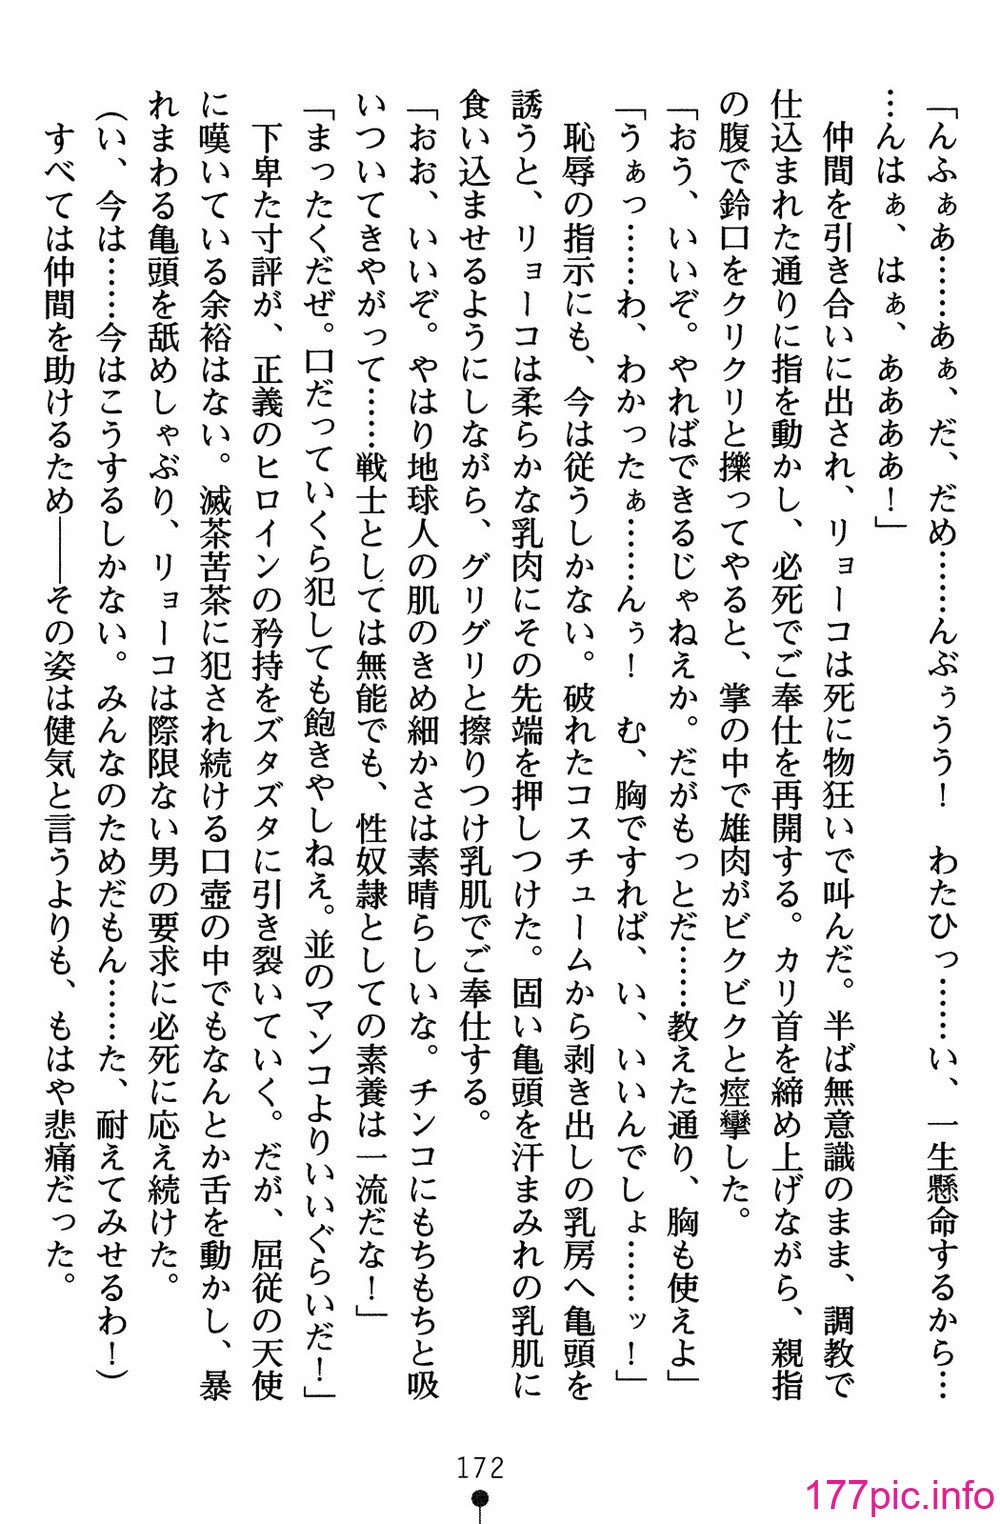 「んふぁあ……あぁ、だ、だめ……んぶぅうう！　わたひっ……い、一生懸命するから…
…んはぁ、はぁ、ああああ！」
　仲間を引き合いに出され、リョーコは死に物狂いで叫んだ。半ば無意識のまま、調教で
仕込まれた通りに指を動かし、必死でご奉仕を再開する。カリ首を締め上げながら、親指
の腹で鈴口をクリクリと擽ってやると、掌の中で雄肉がビクビクと痙攣した。
「おう、いいぞ。やればできるじゃねえか。だがもっとだ……教えた通り、胸も使えよ」
「うぁっ……わ、わかったぁ……んぅ！　む、胸ですれば、い、いいんでしょ……ッ！」
　恥辱の指示にも、今は従うしかない。破れたコスチュームから剥き出しの乳房へ亀頭を
誘うと、リョーコは柔らかな乳肉にその先端を押しつけた。固い亀頭を汗まみれの乳肌に
食い込ませるようにしながら、グリグリと擦りつけ乳肌でご奉仕する。
「おお、いいぞ。やはり地球人の肌のきめ細かさは素晴らしいな。チンコにもちもちと吸
いついてきやがって……戦士としては無能でも、性奴隷としての素養は一流だな！」
「まったくだぜ。口だっていくら犯しても飽きやしねえ。並のマンコよりいいぐらいだ！」
　下卑た寸評が、正義のヒロインの矜持をズタズタに引き裂いていく。だが、屈従の天使
に嘆いている余裕はない。滅茶苦茶に犯され続ける口壺の中でもなんとか舌を動かし、暴
れまわる亀頭を舐めしゃぶり、リョーコは際限ない男の要求に必死に応え続けた。
（い、今は……今はこうするしかない。みんなのためだもん……た、耐えてみせるわ！）
　すべては仲間を助けるため――その姿は健気と言うよりも、もはや悲痛だった。
172
177pic.info